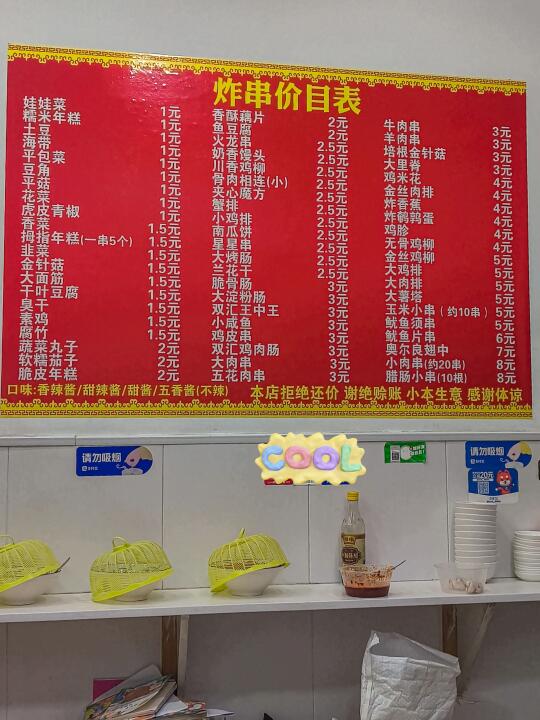 炸串价目表
娃娃菜 1元
糯米年糕 1元
土豆 1元
海带 1元
平包菜 1元
豆角 1元
平菇 1元
花菜 1元
虎皮青椒 1元
香菜 1.5元
拇指年糕(一串5个) 1.5元
韭菜 1.5元
金针菇 1.5元
大面筋 1.5元
千叶豆腐 1.5元
臭干 1.5元
素鸡 1.5元
腐竹 1.5元
蔬菜丸子 2元
软糯茄子 2元
脆皮年糕 2元
香酥藕片 2元
鱼豆腐 2元
火龙串 2.5元
奶香馒头 2.5元
川香鸡柳 2.5元
骨肉相连(小) 2.5元
夹心魔方 2.5元
蟹排 2.5元
小鸡排 2.5元
南瓜饼 2.5元
星星串 2.5元
大烤肠 2.5元
兰花干 2.5元
脆骨肠 3元
大淀粉肠 3元
双汇王中王 3元
小咸鱼 3元
鸡皮串 3元
双汇鸡肉肠 3元
大肉串 3元
五花肉串 3元
牛肉串 3元
羊肉串 3元
培根金针菇 3元
大里脊 3元
鸡米花 4元
金丝肉排 4元
炸香蕉 4元
炸鹌鹑蛋 4元
鸡胗 4元
无骨鸡柳 4元
金丝鸡柳 5元
大鸡排 5元
大肉排 5元
大薯塔 5元
玉米小串(约10串) 5元
鱿鱼须串 5元
鱿鱼片串 6元
奥尔良翅中 7元
小肉串(约20串) 8元
腊肠小串(10根) 8元
口味:香辣酱/甜辣酱/甜酱/五香酱(不辣) 本店拒绝还价 谢绝赊账 小本生意 感谢体谅
请勿吸烟
COOL
请勿吸烟